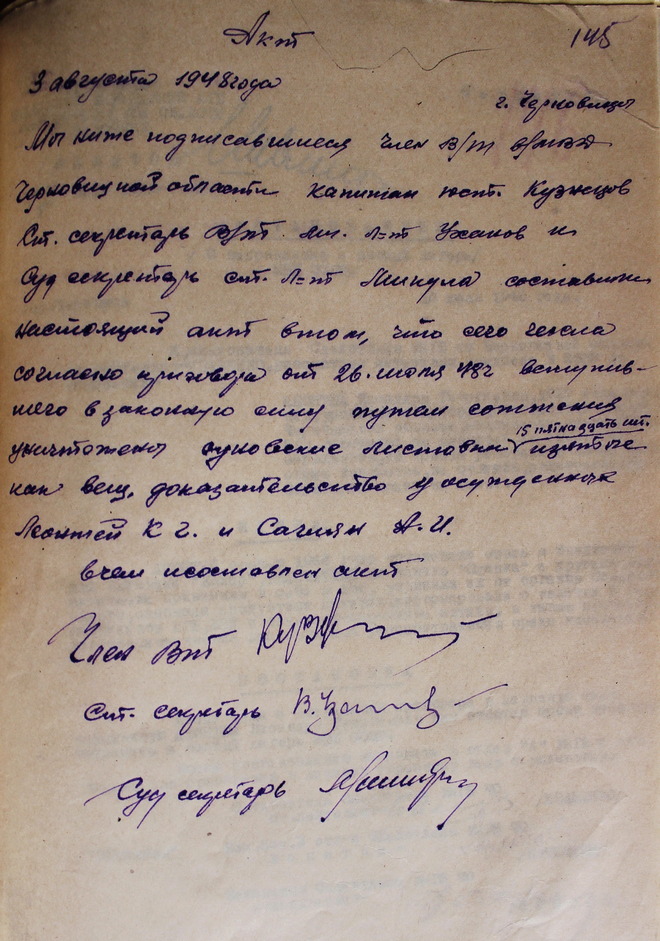 Акт 145
3 августа 1948 года
г. Черновицы
Мы ниже подписавшиеся член В/т в/МВД
Черновицкой области капитан юст. Кузнецов
Ст. секретарь В/т мл. л-т Уханов и
Суд секретарь ст. л-т Микула составили
настоящий акт втом, что сего числа
согласно приговора от 26. июля 48г вступив-
шего в законную силу путем сожжения
15 пятнадцать шт.
уничтожены оуновские листовки изятые
как вещ. доказательство у осужденных
Леонтей К Г. и Сагиян А. И.
вчем исоставлен акт
Член Вт
Ст. секретарь
Суд секретарь